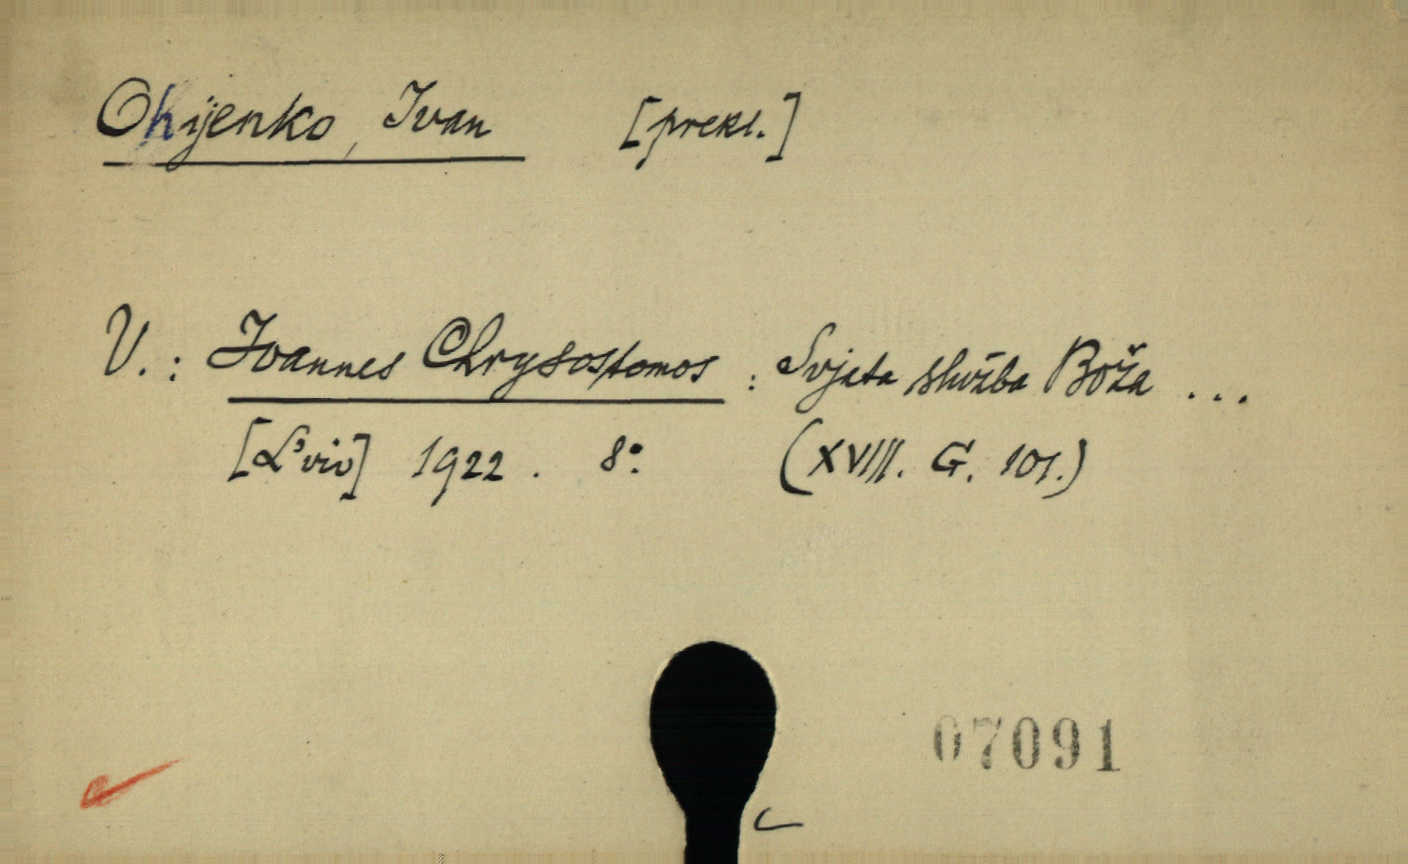 Ohijenko, Ivan [prekl.]
V.: Ioannes Chrysostomos: Svjata služba Boža ...
[L'viv] 1922. 8°. (XVIII. G. 101.)
07091